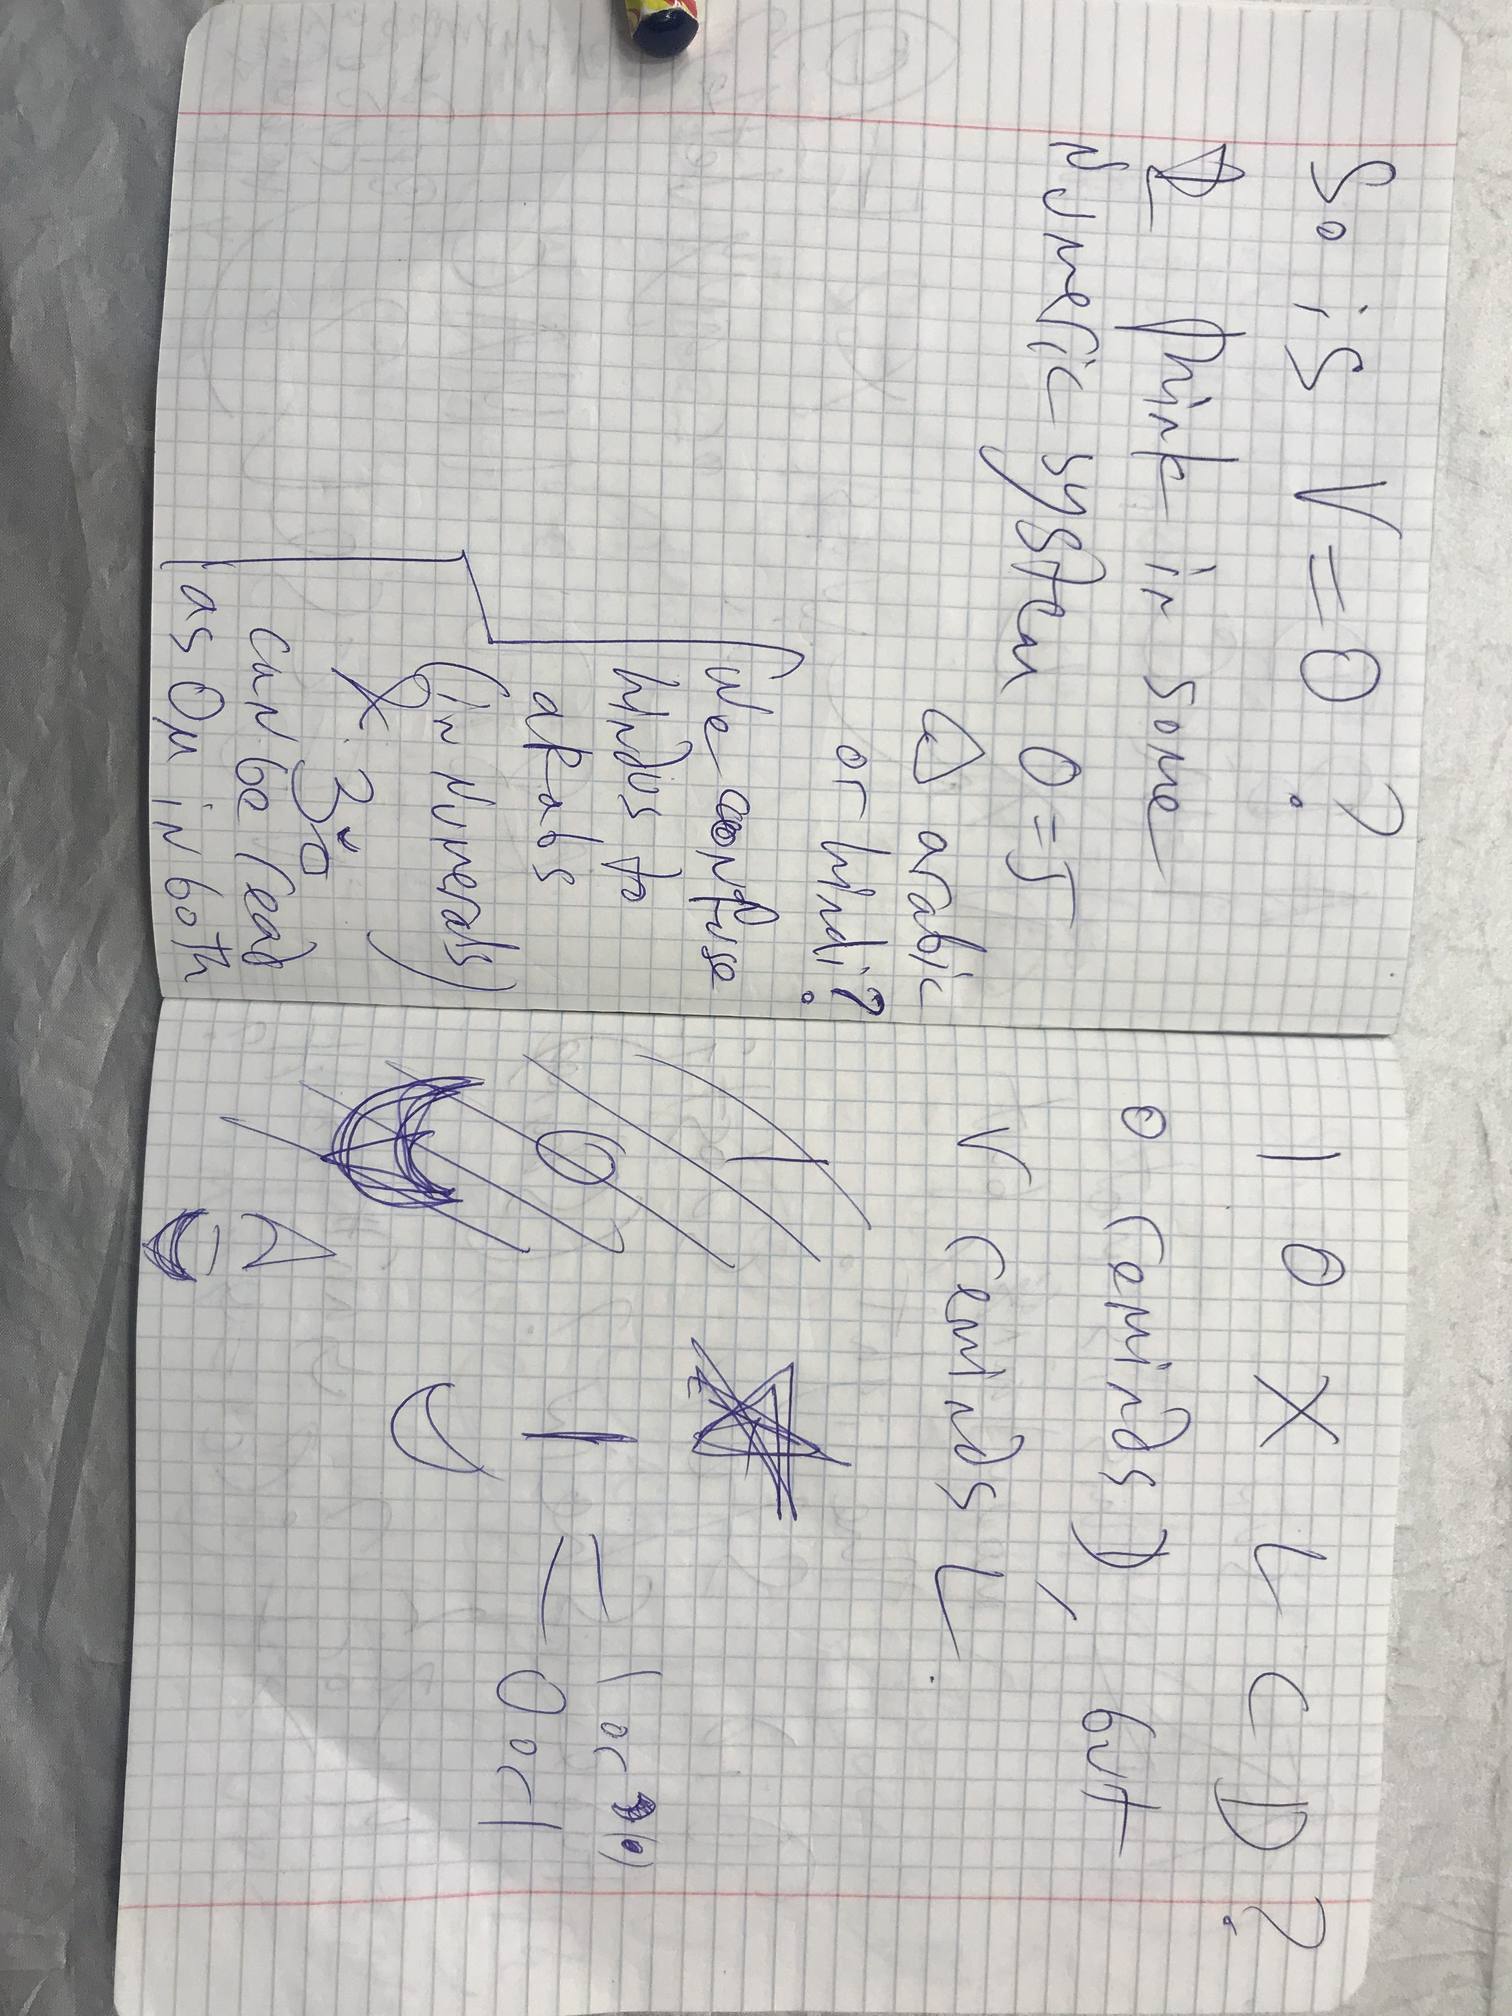 So is V = O ?
I think in some
Numeric system O = 5
arabic
or hindi?
We confuse
hindus to
arabs
(in Numerals)
can be read
as Om in both
I O X L C D ?
O reminds D, but
V reminds L.
= 1 or
O or 1